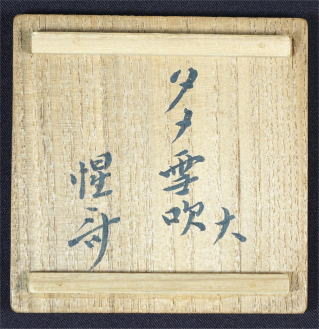 タメ雪吹
大
惺斎